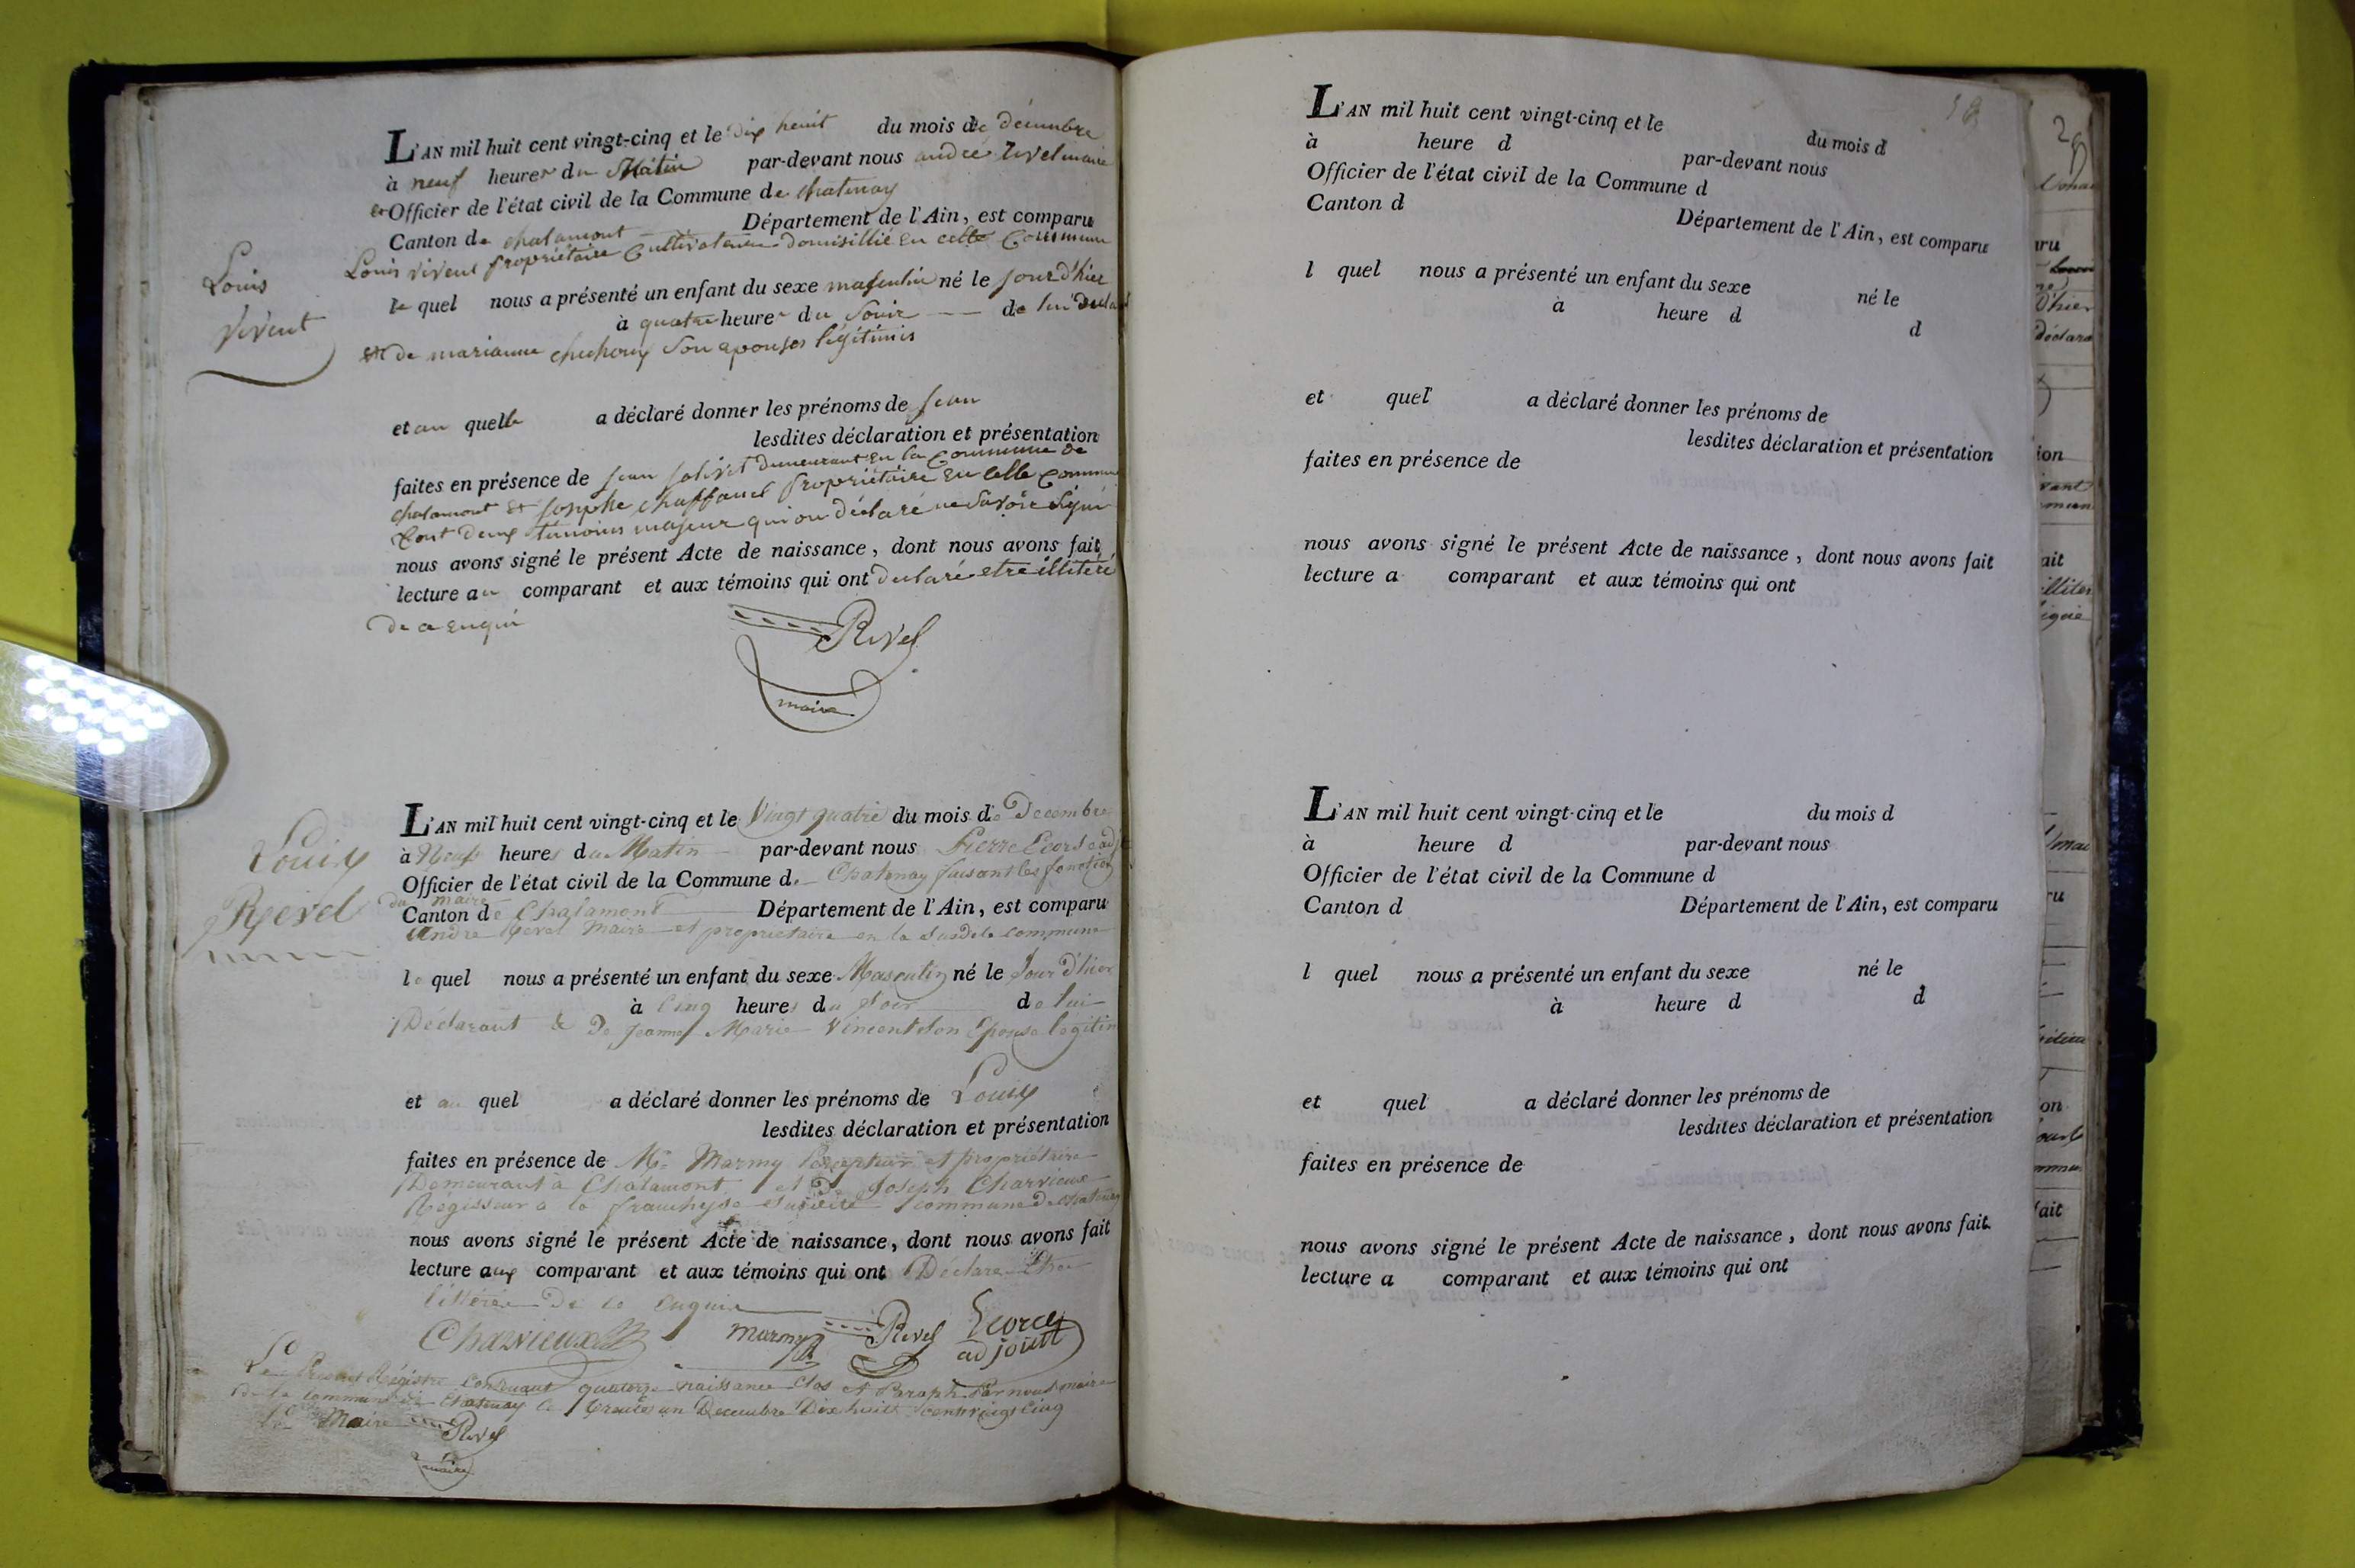 L'AN mil huit cent vingt-cinq et le dix heuit du mois de décembre
à neuf heures du Matin par-devant nous andré revel maire
et Officier de l'état civil de la Commune de chatenay
Canton de chalamont Département de l'Ain, est comparu
Louis vivent propriétaire Cultivateur domisillié en cette Commune
le quel nous a présenté un enfant du sexe masculin né le jour d'hier
à quatre heures du Soir de lui
et de marianne son légitimes
Louis
vivent
et au quelle a déclaré donner les prénoms de jean
lesdites déclaration et présentation
faites en présence de jean demeurant en la Commune de
chalamont et propriétaire en celle Commune
majeur qui on déclaré ne savoir
nous avons signé le présent Acte de naissance, dont nous avons fait
lecture au comparant et aux témoins qui ont declaré etre
de a
Revel
maire
L'AN mil huit cent vingt-cinq et le Vingt quatre du mois de Decembre
à Neuf heures du Matin par-devant nous Pierre
Officier de l'état civil de la Commune de Chatenay faisant les fonction
du maire
Canton de Chalamont Département de l'Ain, est comparu
andre Revel Maire et proprietaire en la commune
le quel nous a présenté un enfant du sexe Masculin né le Jour d'hier
à Cinq heures du Soir de lui
Déclarant & De jeanne Marie Vincent son Epouse
Louis
Revel
et au quel a déclaré donner les prénoms de Louis
lesdites déclaration et présentation
faites en présence de Mr Marmy Percepteur et propriétaire
Demeurant à Chalamont et De Joseph Charvieux
Régisseur à la commune de chatenay
nous avons signé le présent Acte de naissance, dont nous avons fait
lecture aux comparant et aux témoins qui ont Déclare Etre
De ce Enquis
Charvieux marmy Revel Ecorcy
adjoint
Le Présent Régistre Contenant quatorze naissance Clos et Paraph Par nous maire
de la commune de Chatenay le trente un Decembre Dix huit Cent vingt Cinq
Le Maire Revel
maire
18
L'AN mil huit cent vingt-cinq et le du mois d
à heure d par-devant nous
Officier de l'état civil de la Commune d
Canton d Département de l'Ain, est comparu
l quel nous a présenté un enfant du sexe né le
à heure d d
et quel a déclaré donner les prénoms de
lesdites déclaration et présentation
faites en présence de
nous avons signé le présent Acte de naissance, dont nous avons fait
lecture a comparant et aux témoins qui ont
L'AN mil huit cent vingt-cinq et le du mois d
à heure d par-devant nous
Officier de l'état civil de la Commune d
Canton d Département de l'Ain, est comparu
l quel nous a présenté un enfant du sexe né le
à heure d d
et quel a déclaré donner les prénoms de
lesdites déclaration et présentation
faites en présence de
nous avons signé le présent Acte de naissance, dont nous avons fait
lecture a comparant et aux témoins qui ont